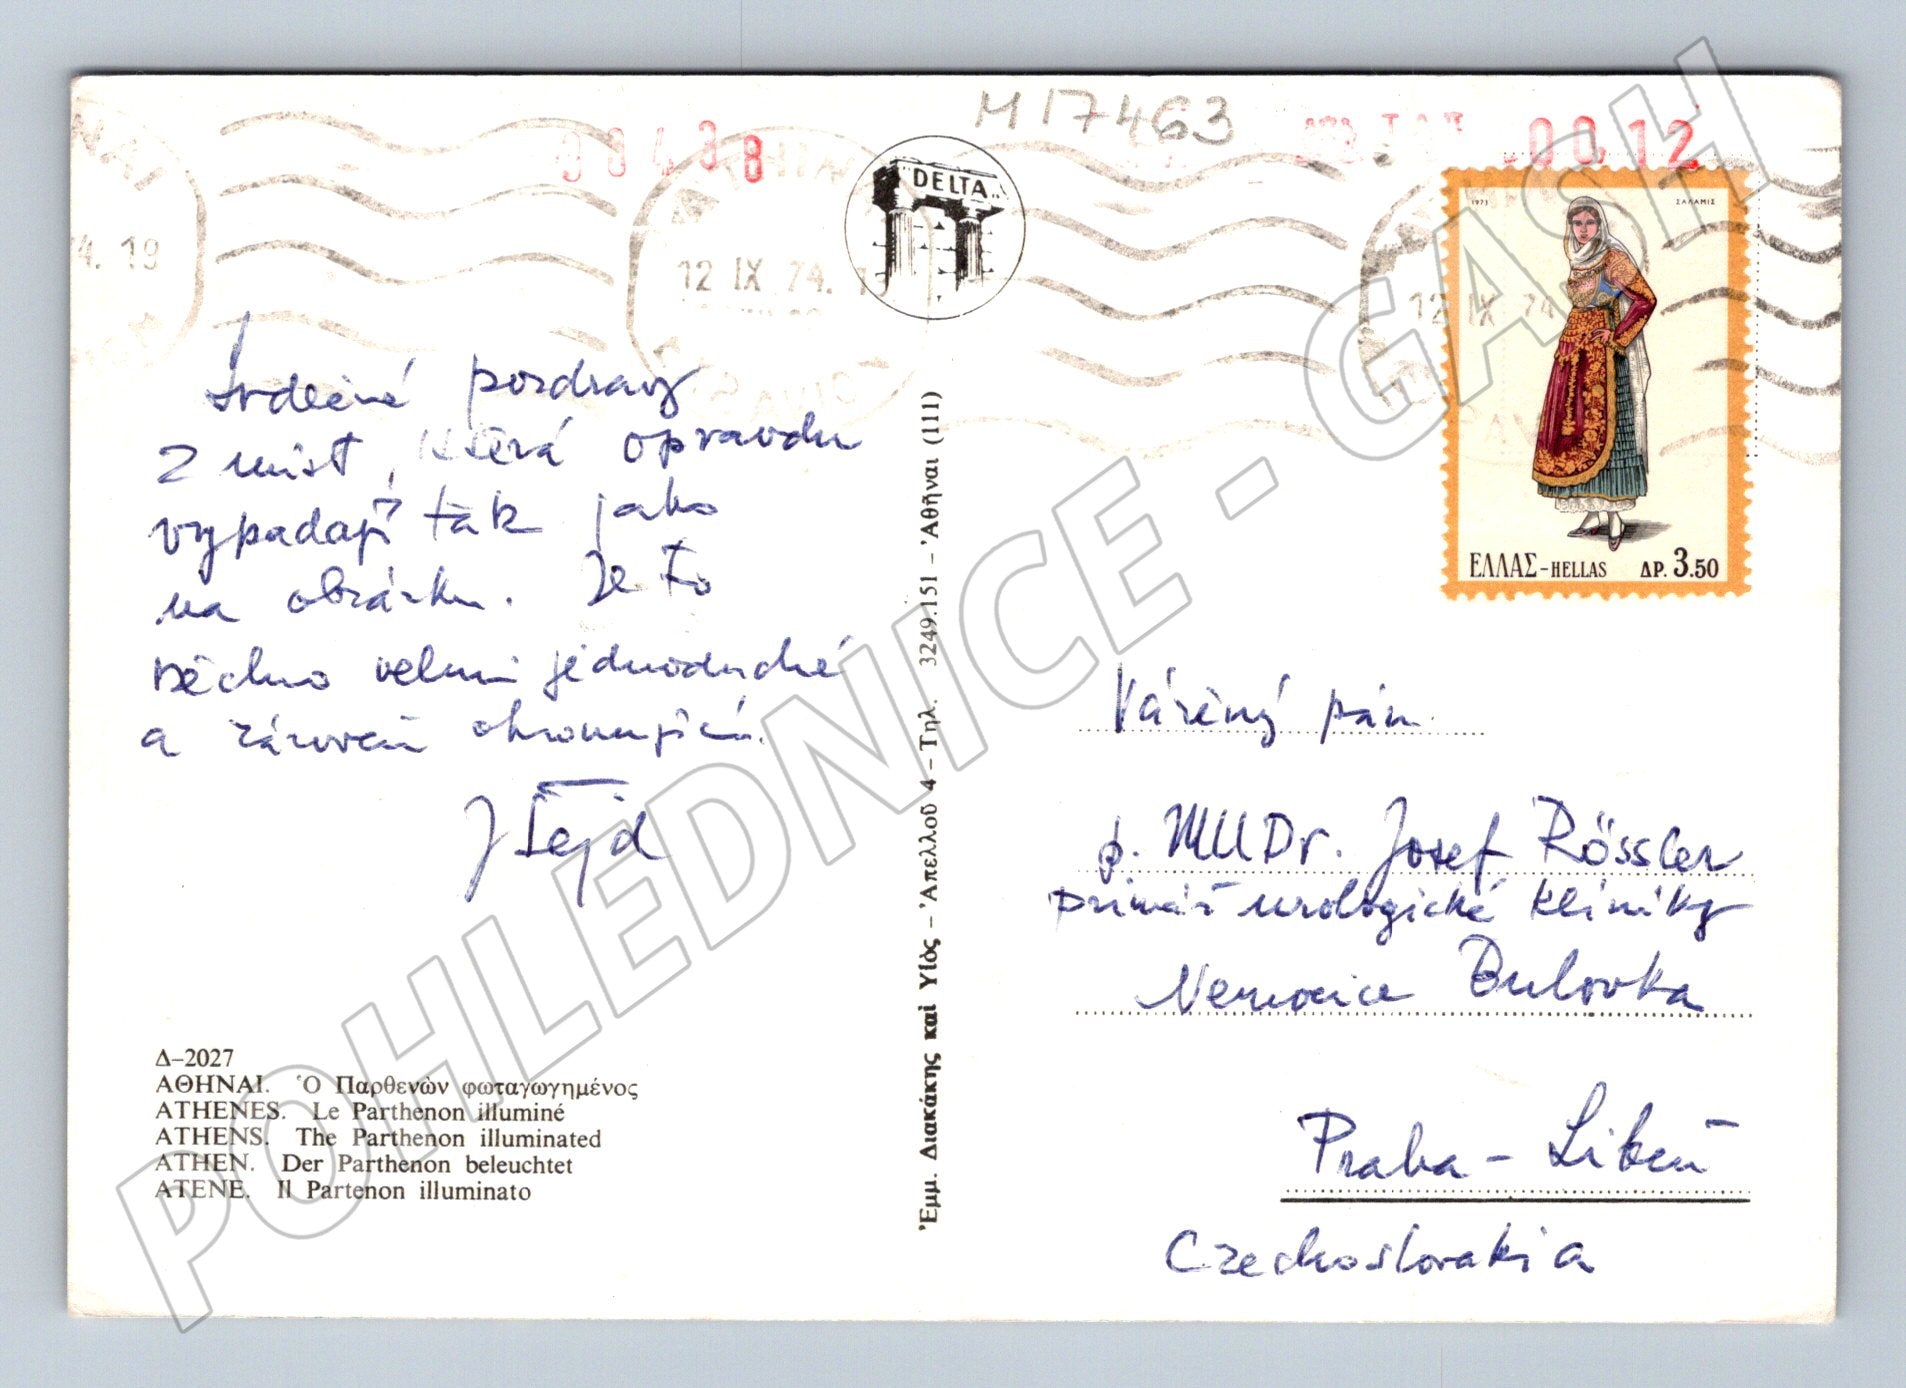 M 17463
0012
DELTA
12 IX 74
12 IX 74
1973 ΣΑΛΑΜΙΣ
ΕΛΛΑΣ-HELLAS ΔΡ. 3.50
Srdečné pozdravy
z míst, která opravdu
vypadají tak jako
na obrázku. Je to
všechno velmi jednoduché
a zároveň ohromující.
J Šejd
Δ-2027
ΑΘΗΝΑΙ. Ὁ Παρθενὼν φωταγωγημένος
ATHENES. Le Parthenon illuminé
ATHENS. The Parthenon illuminated
ATHEN. Der Parthenon beleuchtet
ATENE. Il Partenon illuminato
Ἐμμ. Διακάκης καὶ Υἱὸς – Ἀπελλοῦ 4 – Τηλ. 3249.151 – Ἀθῆναι (111)
Vážený pán
p. MUDr. Josef Rössler
primář urologické kliniky
Nemocnice Bulovka
Praha - Libeň
Czechoslovakia
POHLEDNICE - GASH